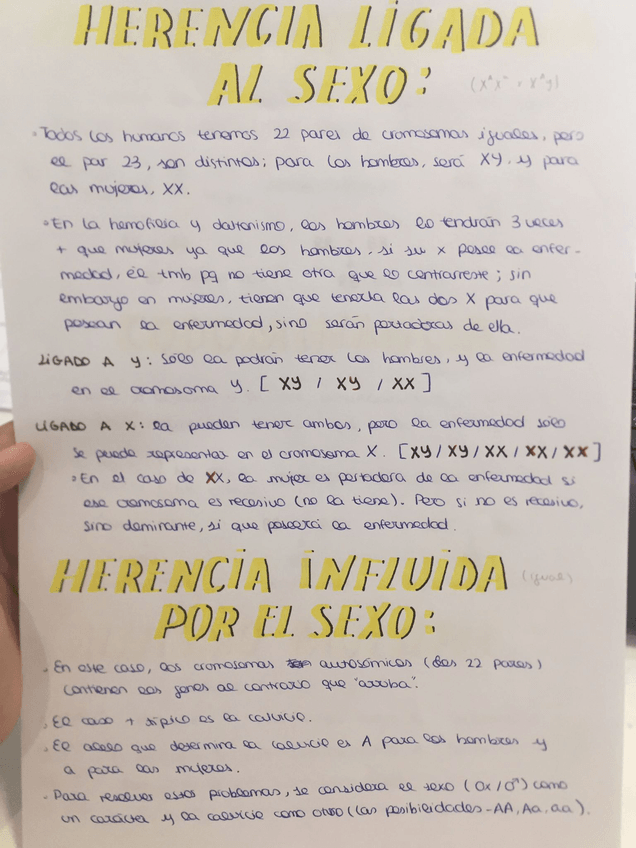 HERENCIA LIGADA
AL SEXO:
• Todos los humanos tenemos 22 pares de cromosomas iguales, pero
el par 23, son distintos; para los hombres, será XY. y para
las mujeres, XX.
• En la hemofilia y daltonismo, los hombres lo tendrán 3 veces
+ que mujeres ya que los hombres. si su x posee la enfer-
medad, él tmb pq no tiene otra que lo contrarreste; sin
embargo en mujeres, tienen que tenerla las dos X para que
posean la enfermedad, sino serán portadoras de ella.
LIGADO A Y: sólo la podrán tener los hombres, y la enfermedad
en el cromosoma Y. [ XY / XY / XX ]
LIGADO A X: la pueden tener ambos, pero la enfermedad sólo
se puede representar en el cromosoma X. [XY / XY / XX / XX / XX]
• En el caso de XX, la mujer es portadora de la enfermedad si
ese cromosoma es recesivo (no la tiene). Pero si no es recesivo,
sino dominante, si que poseerá la enfermedad.
HERENCIA INFLUIDA (igual)
POR EL SEXO:
. En este caso, los cromosomas autosómicos (los 22 pares)
contienen los genes al contrario que "arriba".
. El caso + típico es la calvicie.
. El alelo que determina la calvicie es A para los hombres y
a para las mujeres.
. Para resolver estos problemas, se considera el sexo (♀/♂) como
un carácter y la calvicie como otro (las posibilidades - AA, Aa, aa).